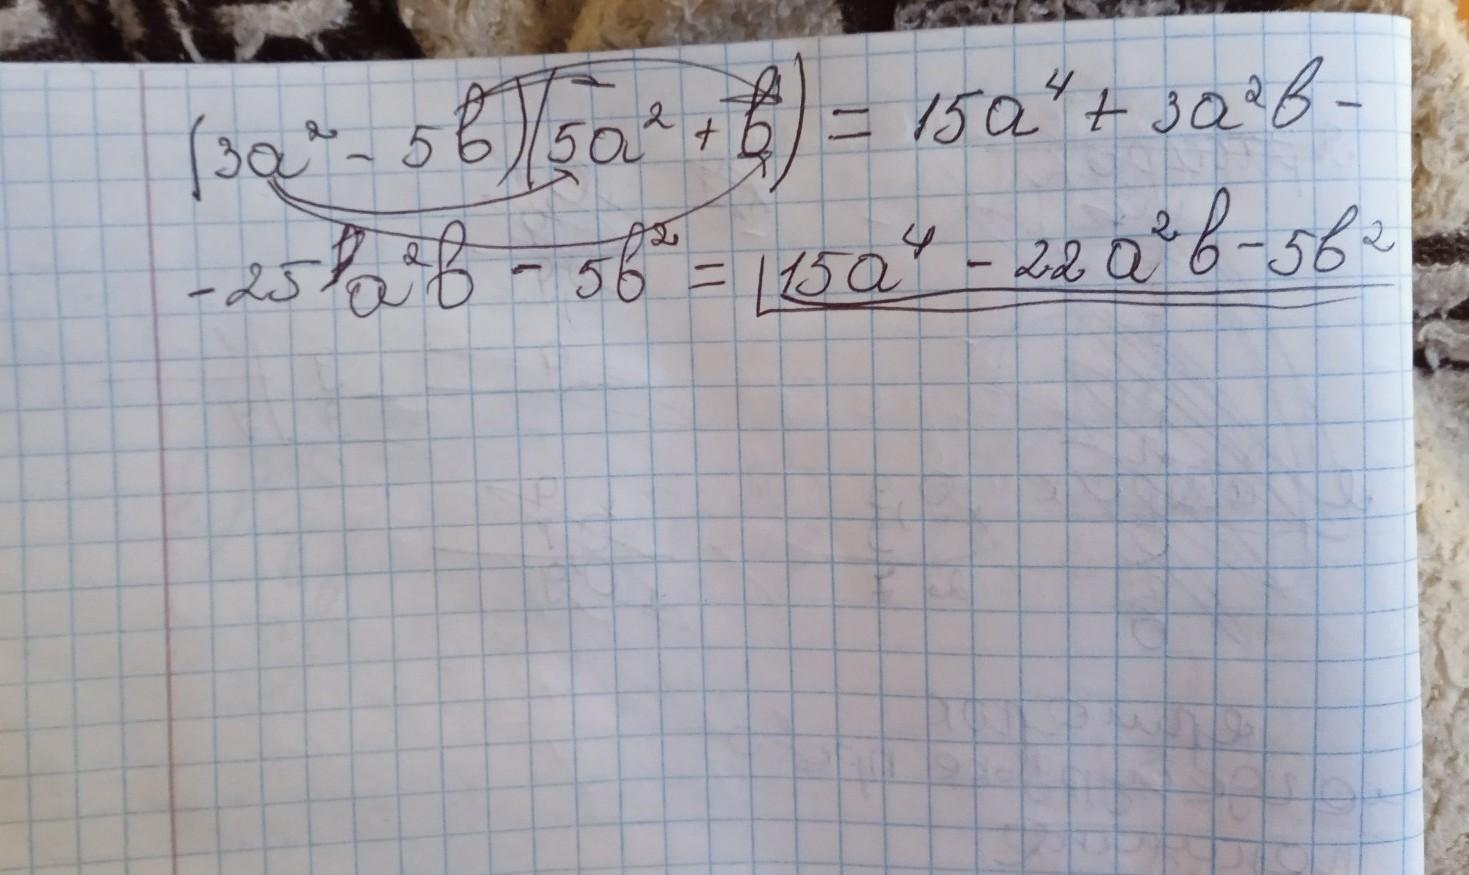 (3a² - 5b)(5a² + b) = 15a⁴ + 3a²b -
- 25a²b - 5b² = 15a⁴ - 22a²b - 5b²